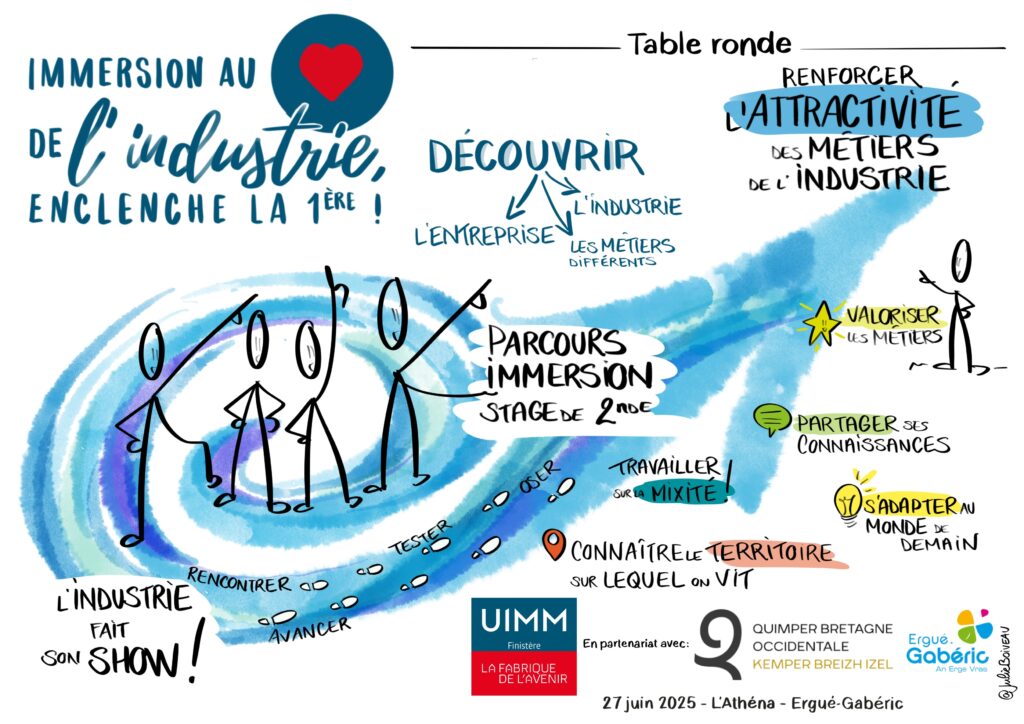 IMMERSION AU
DE l'industrie,
ENCLENCHE LA 1ÈRE !
Table ronde
RENFORCER
L'ATTRACTIVITÉ
DES MÉTIERS
DE L'INDUSTRIE
DÉCOUVRIR
L'INDUSTRIE
L'ENTREPRISE
LES MÉTIERS
DIFFÉRENTS
PARCOURS
IMMERSION
STAGE DE 2NDE
VALORISER
LES MÉTIERS
PARTAGER SES
CONNAISSANCES
S'ADAPTER AU
MONDE DE
DEMAIN
TRAVAILLER
SUR LA MIXITÉ !
CONNAÎTRE LE TERRITOIRE
SUR LEQUEL ON VIT
OSER
TESTER
RENCONTRER
AVANCER
L'INDUSTRIE
FAIT
SON SHOW !
UIMM
Finistère
LA FABRIQUE
DE L'AVENIR
En partenariat avec:
QUIMPER BRETAGNE
OCCIDENTALE
KEMPER BREIZH IZEL
Ergué-
Gabéric
An Erge Vras
@JulieBoiveau
27 juin 2025 - L'Athéna - Ergué-Gabéric